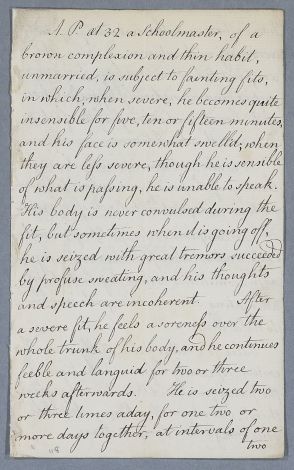 A. P. at 32 a Schoolmaster, of a
brown complexion and thin habit,
unmarried, is subject to fainting fits,
in which, when severe, he becomes quite
insensible for five, ten or fifteen minutes,
and his face is somewhat swell'd; when
they are less severe, though he is sensible
of what is passing, he is unable to speak.
His body is never convulsed during the
fit, but sometimes when it is going off,
he is seized with great tremors succeeded
by profuse sweating, and his thoughts
and speech are incoherent. After
a severe fit, he feels a soreness over the
whole trunk of his body, and he continues
feeble and languid for two or three
weeks afterwards. He is seized two
or three times a day, for one two or
more days together, at intervals of one
two